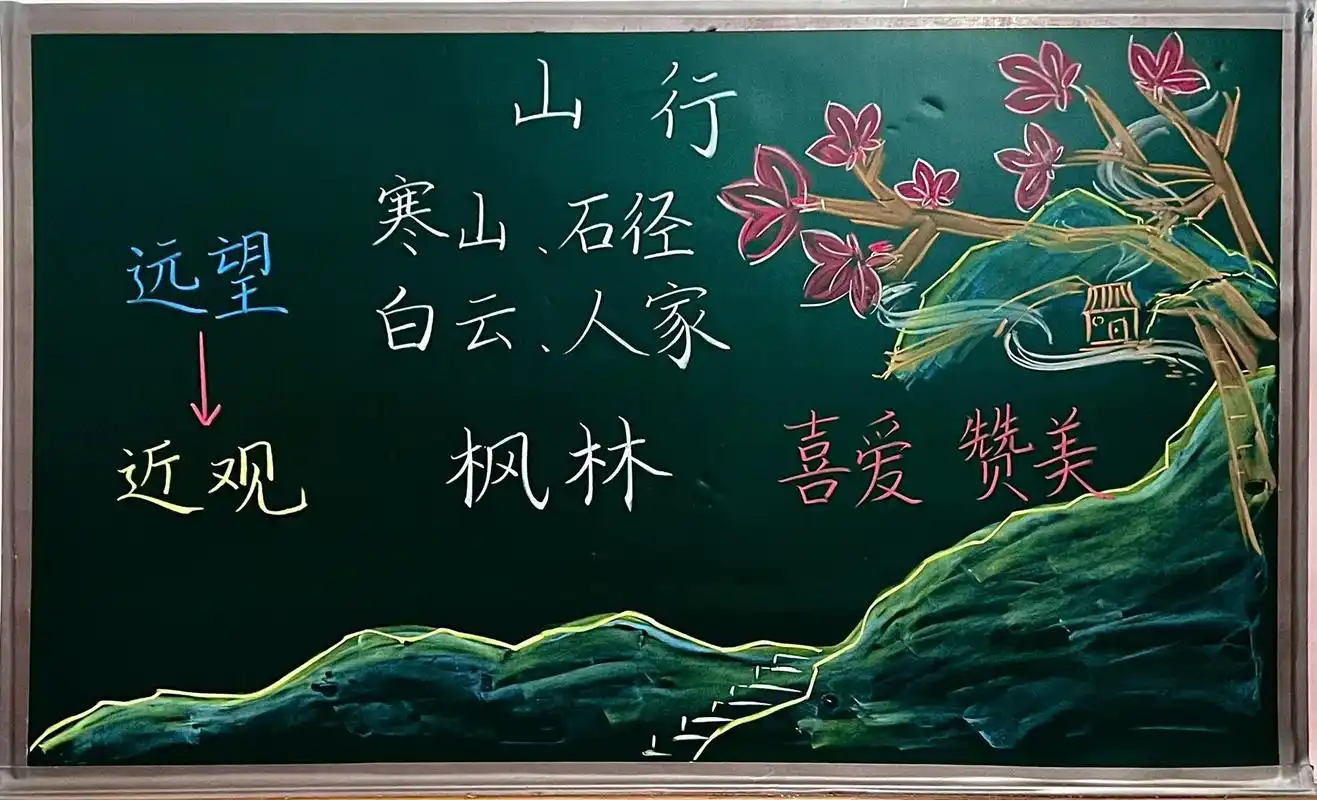 山行
寒山、石径
远望
白云、人家
近观
枫林
喜爱 赞美